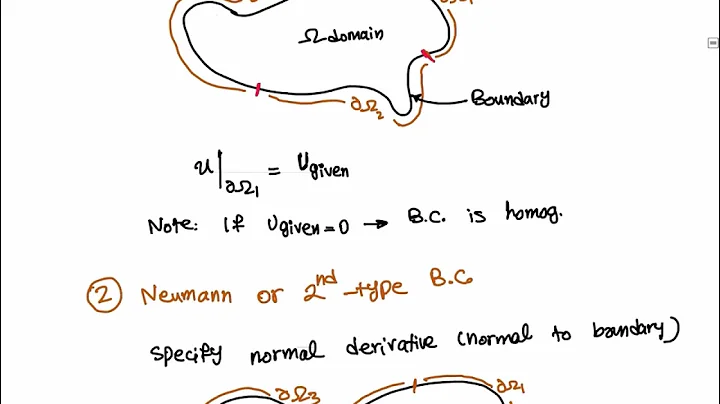 Ω domain
∂Ω₂
Boundary
u|∂Ω₁ = Ugiven
Note: If Ugiven=0 → B.C. is homog.
② Neumann or 2nd-type B.C
Specify normal derivative (normal to boundary)
∂Ω₃
∂Ω₁